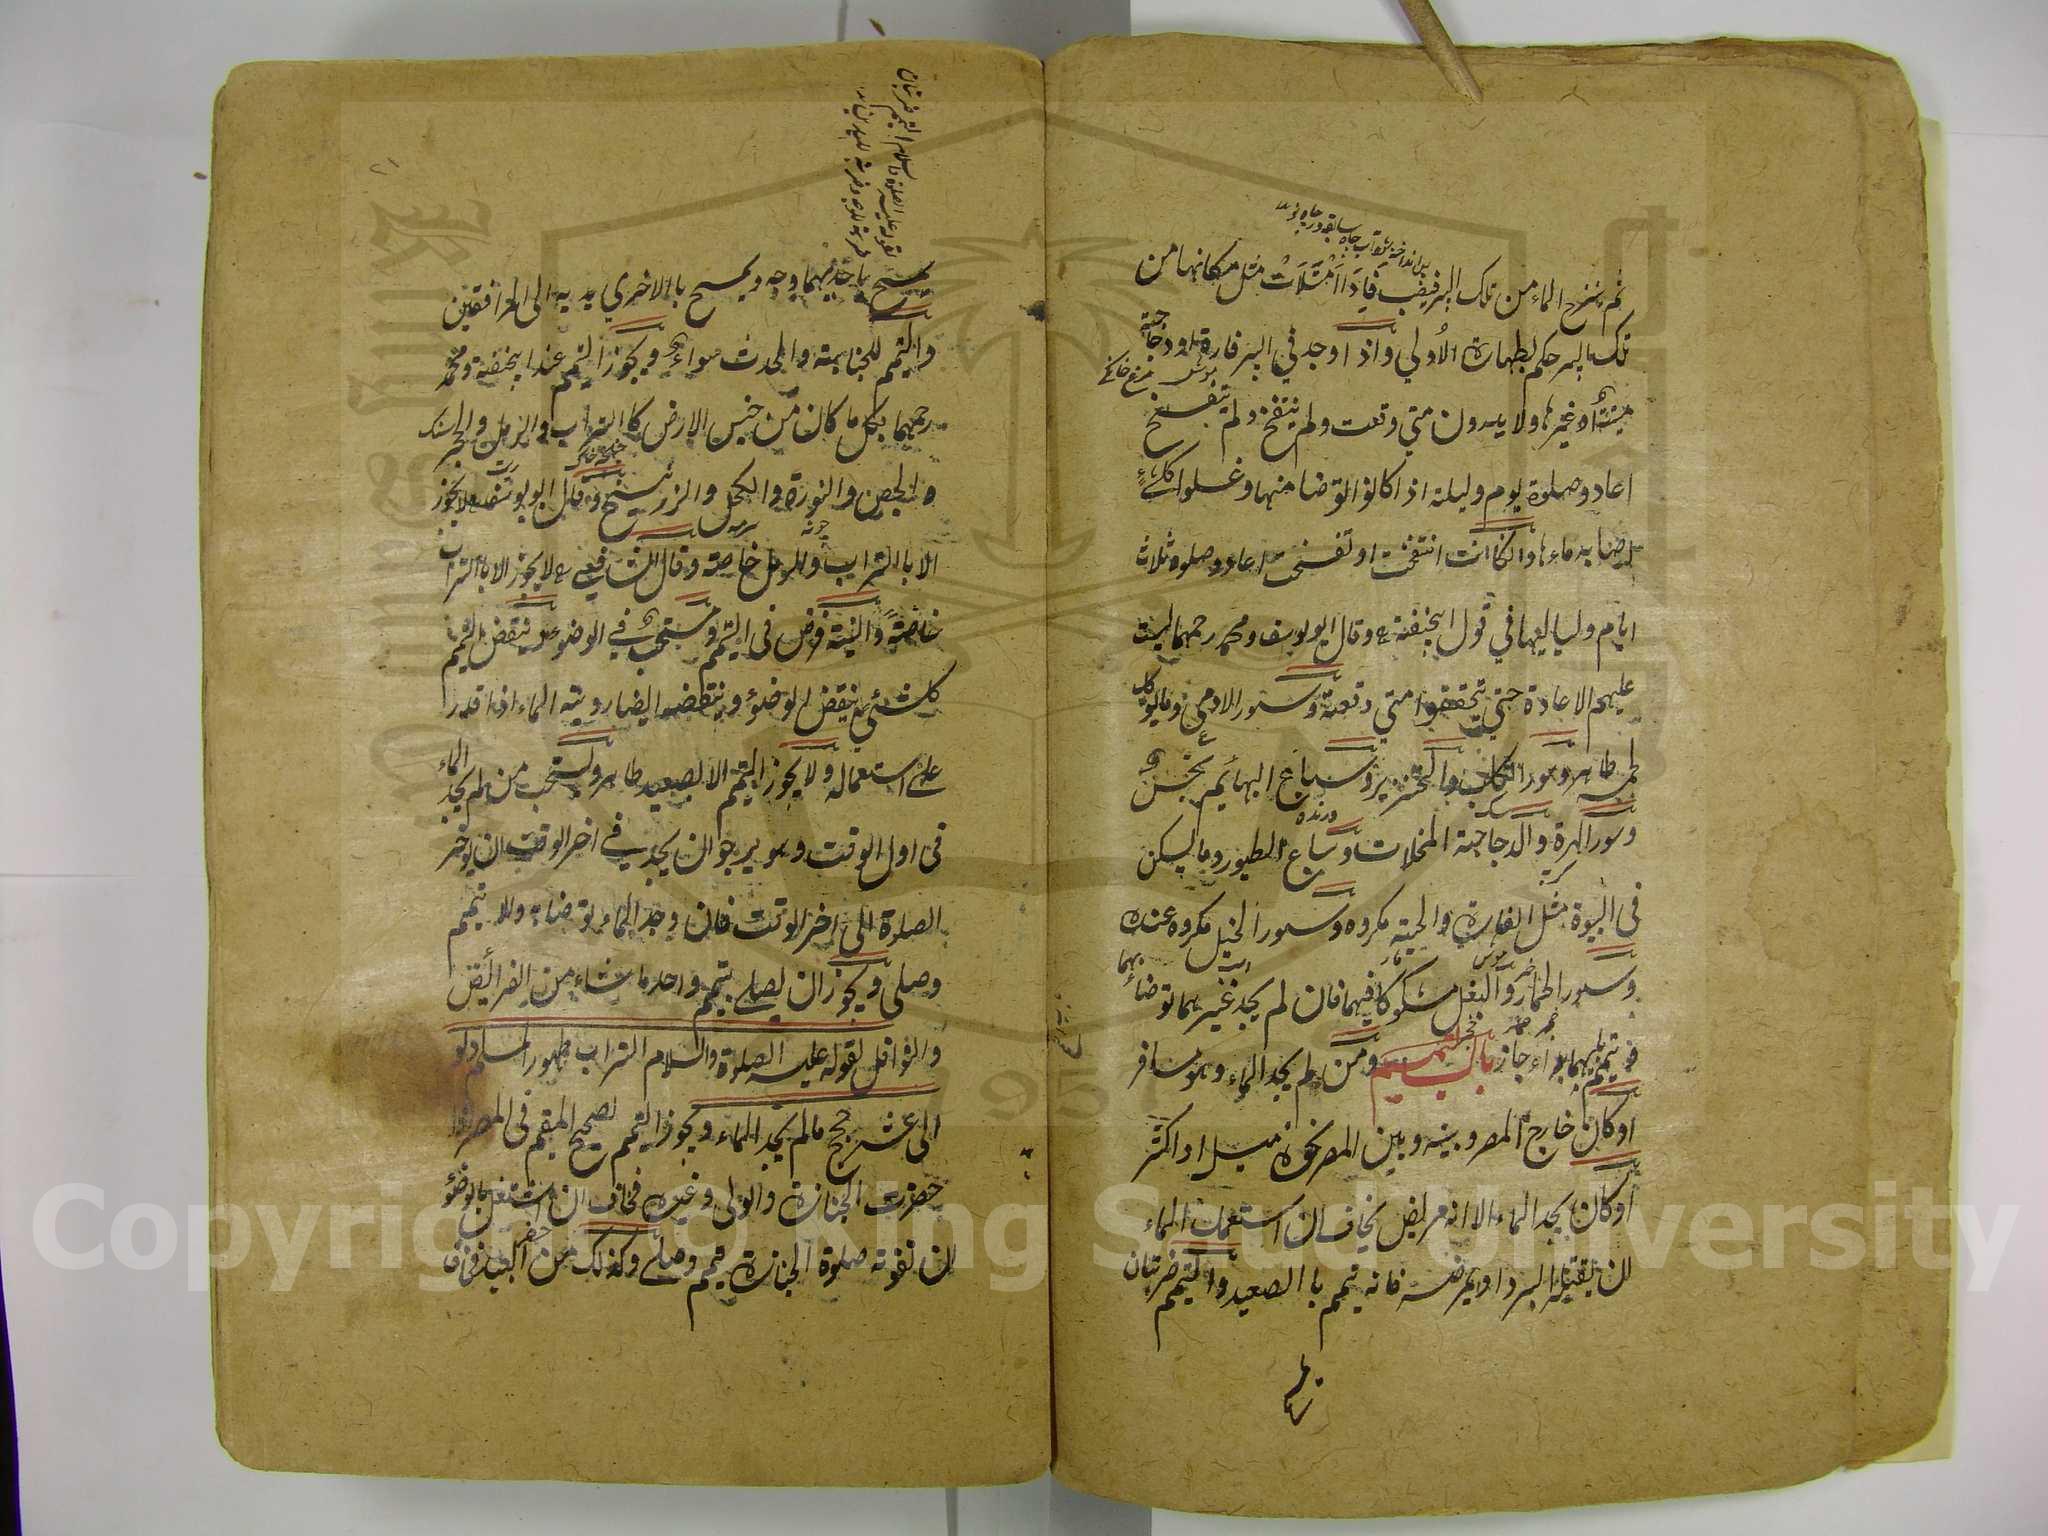 ثم ينزح الماء من تلك البير فيصب فاذا امتلات مثل مكانها من
تلك البير حكم بطهارة الاولي واذا وجد في البير فارة او دجاجة
ميتة او غيرها ولا يدرون متي وقعت ولم ينتفخ ولم يتفسخ
اعادو صلوة يوم وليلة اذا كانوا توضا منها وغسلوا كل شيء
اصابه ماءها وان كانت انتفخت او تفسخت اعادو صلوة ثلاث
ايام ولياليها في قول ابيحنيفة وقال ابو يوسف ومحمد رحمهما ليس
عليهم الاعادة حتي تحققوا متي وقعت وسور الادمي وما يوكل
لحمه طاهر وسور الكلب والخنزير وسباع البهائم نجس
وسور الهرة والدجاجة المخلات وسباع الطيور وما يسكن
في البيوة مثل الفارة والحية مكروه وسور الخيل مكروه عنده
وسور الحمار والبغل مشكوكا فيهما فان لم يجد غيرهما توضا بهما
وتيمم بايهما بدا جاز باب التيمم ومن لم يجد الماء وهو مسافر
او كان خارج المصر وبينه وبين المصر نحوه ميل او اكثر
او كان يجد الماء الا انه مريض يخاف ان استعمات الماء
ان يقتله البرد او يمرضه فانه تيمم با الصعيد والتيمم ضربتان
لقوله عليه الصلوة والسلام التيمم ضربتان
ضربة للوجه وضربة لليدين
يمسح باحديهما وجه ويمسح باالاخري يديه الى المرافقين
والتيمم للجنابة والحدث سواء ويجوز التيمم عند ابيحنيفة ومحمد
رحمهما بكل ما كان من جنس الارض كاالتراب والرمل والحجر
والجص والنورة والكحل والزرنيخ وقال ابو يوسف لا يجوز
الا باالتراب والرمل خاصة وقال الشافعي لا يجوز الا باالتراب
خاصة والنية فرض في التيمم ومستحب في الوضوء وينقض التيمم
كل شئي ينقض الوضوء وينقضه ايضا روية الماء اذا قدر
على استعماله ولا يجوز التيمم الا بصعيد طاهر ويستحب من لم يجد الماء
في اول الوقت وهو يرجو ان يجد في اخر الوقت ان يوخر
الصلوة الى اخر الوقت فان وجد الماء توضا به والا تيمم
وصلى ويجوز ان يصلي بتيمم واحد ما شاء من الفرائض
والنوافل لقوله عليه الصلوة والسلام التراب طهور المسلم ولو
الى عشر حجج مالم يجد الماء ويجوز التيمم لصحيح المقيم في المصر اذا
حضرت الجنازة والولى وغيره فخاف ان اشتغل بالوضوء
ان تفوته صلوة الجنازة تيمم وصلي وكذلك من حضر العيد فخاف
Copyright © King Saud University
1957